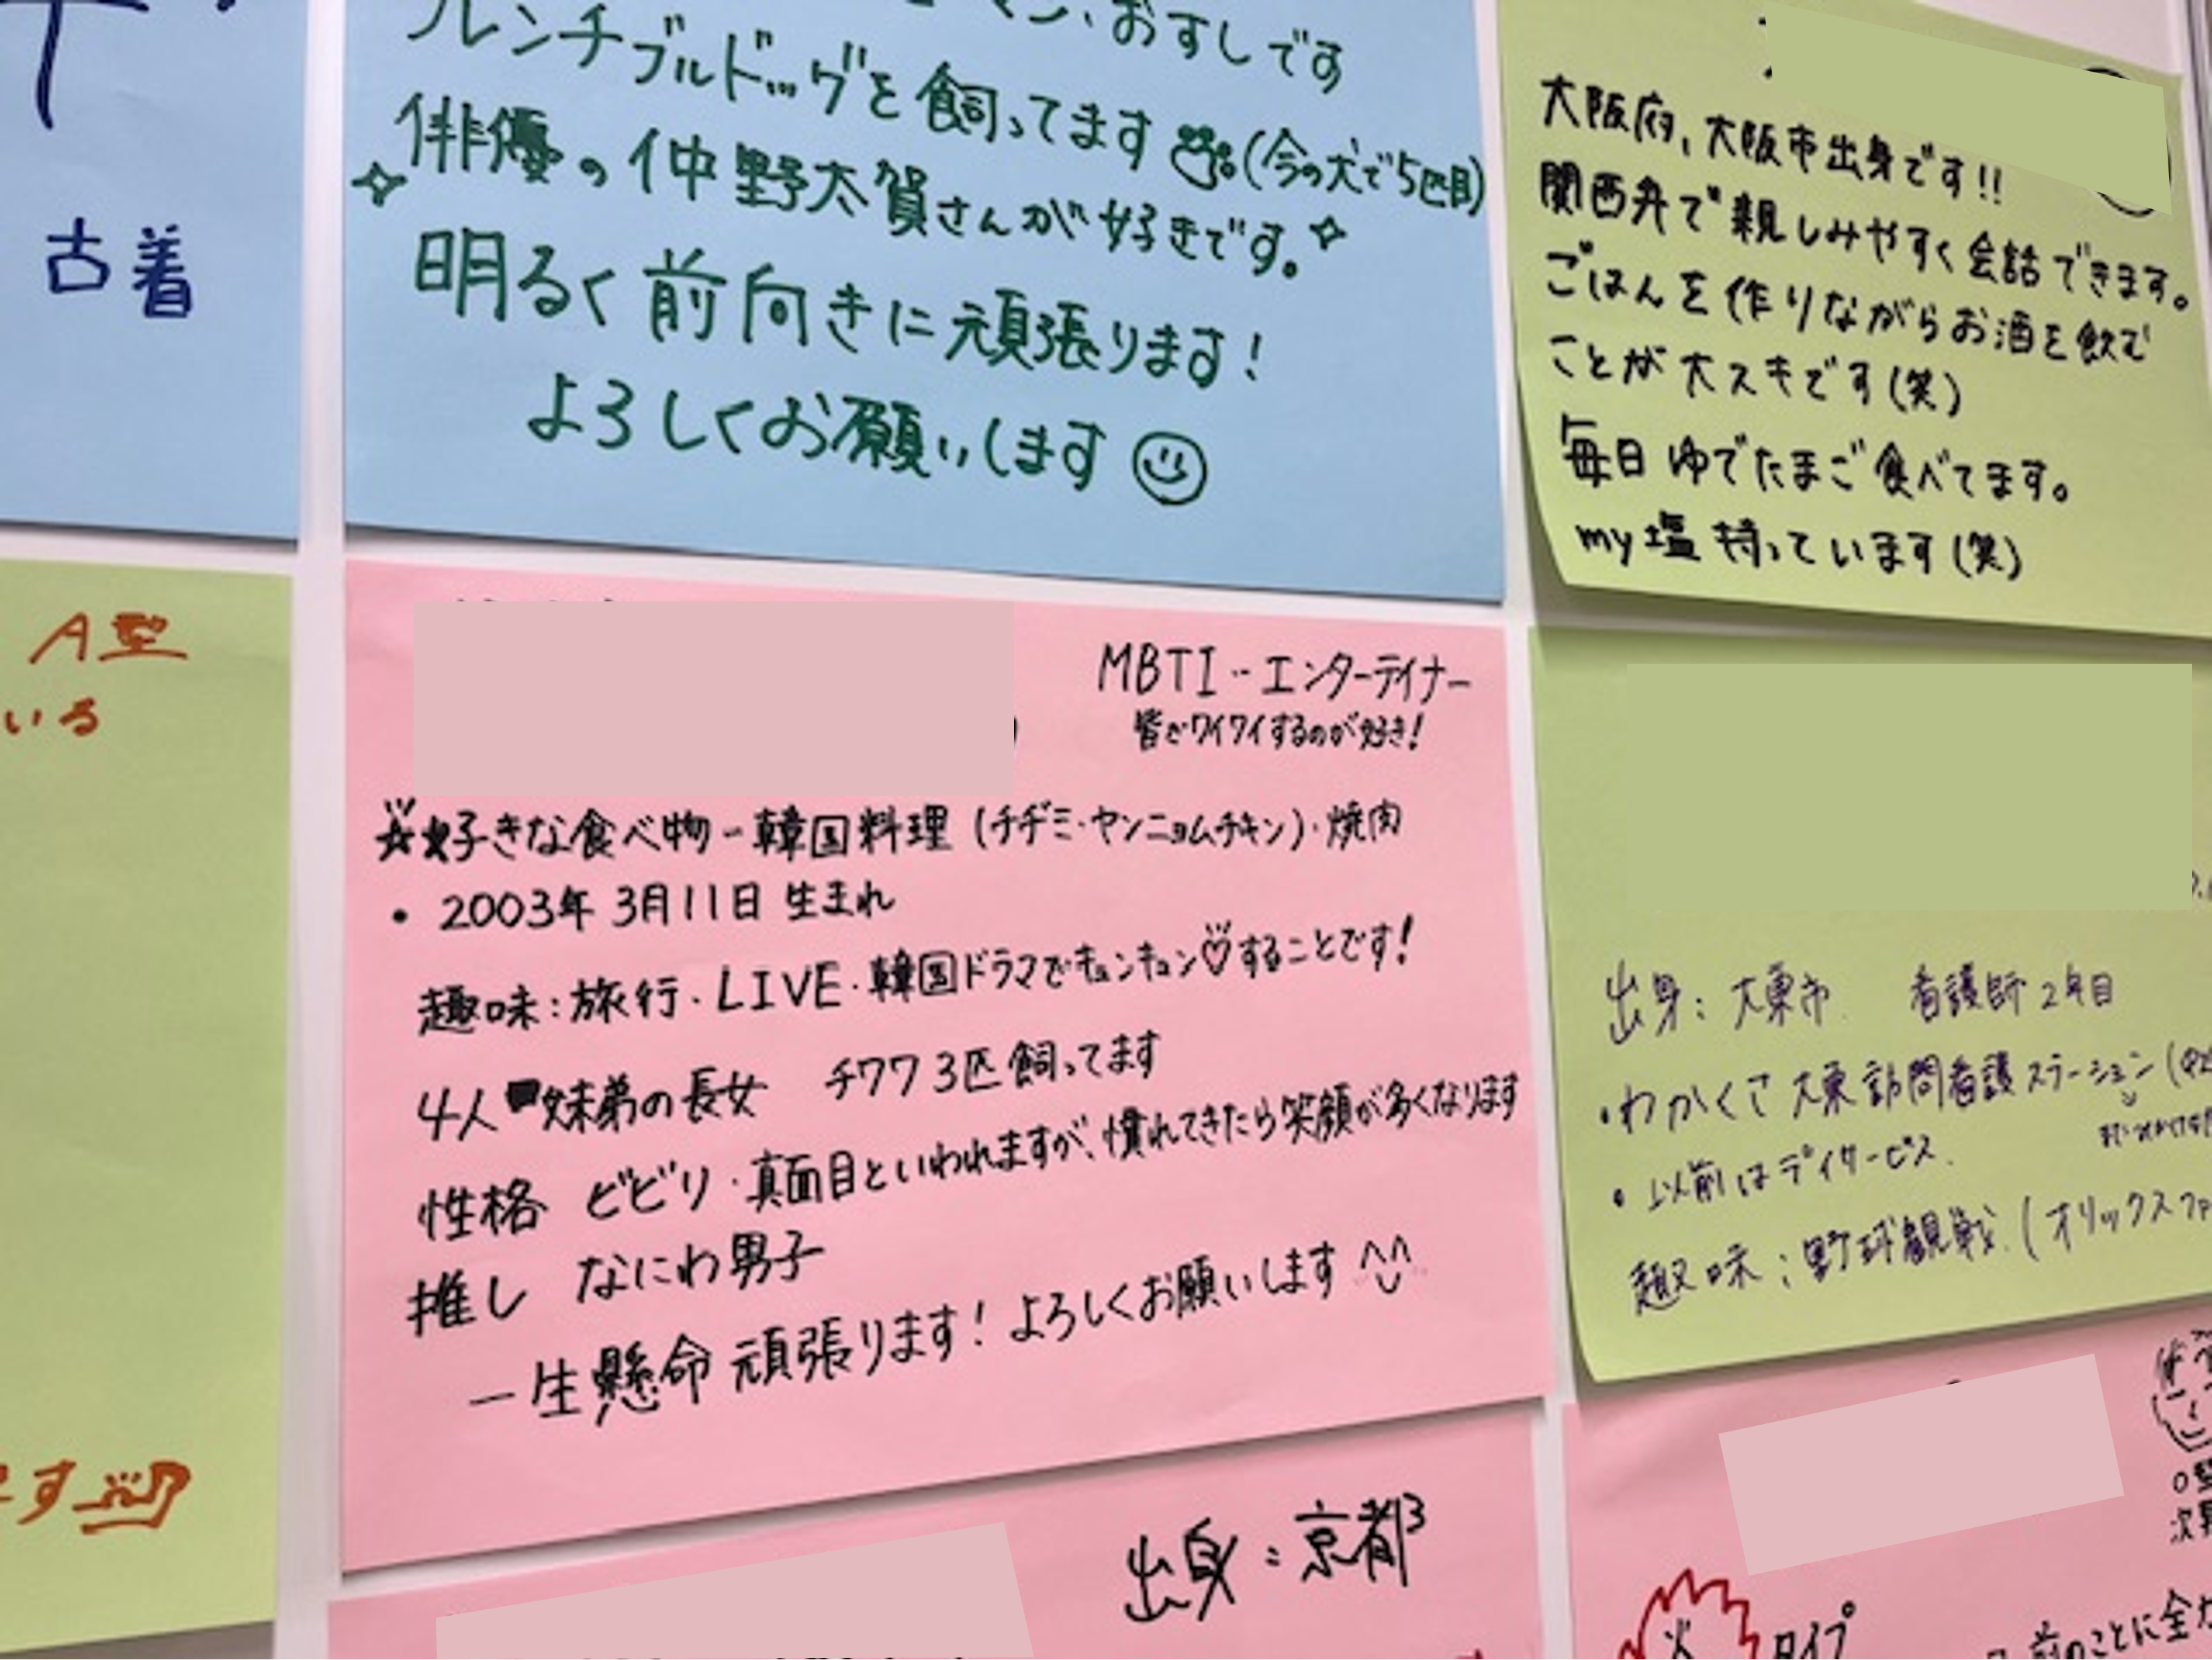 古着
おすしです
フレンチブルドッグを飼ってます(今の犬で5匹目)
俳優の仲野太賀さんが好きです。
明るく前向きに頑張ります!
よろしくお願いします
大阪府、大阪市出身です!!
関西弁で親しみやすく会話できます。
ごはんを作りながらお酒を飲む
ことが大スキです(笑)
毎日ゆでたまご食べてます。
my塩持っています(笑)
A型
いる
です
MBTI‥エンターテイナー
皆でワイワイするのが好き!
☆好きな食べ物-韓国料理(チヂミ・ヤンニョムチキン)・焼肉
・2003年3月11日生まれ
趣味:旅行・LIVE・韓国ドラマでキュンキュン♡することです!
4人妹弟の長女 チワワ3匹飼ってます
性格 ビビり・真面目といわれますが、慣れてきたら笑顔が多くなります
推し なにわ男子
一生懸命頑張ります!よろしくお願いします^^
出身:大東市 看護師2年目
・わかくさ大東訪問看護ステーション(
・以前はデイサービス.
趣味:野球観戦.(オリックスファ
出身:京都
O型
火 タイプ
前のことに全力